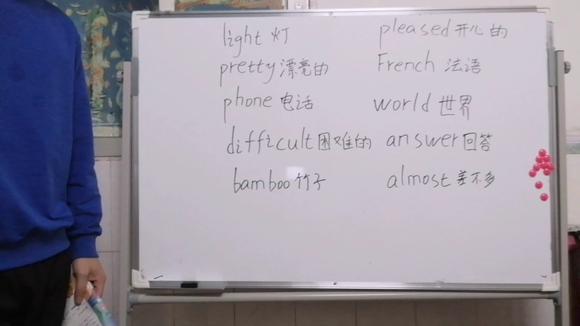 light 灯 pleased 开心的
pretty 漂亮的 French 法语
phone 电话 world 世界
difficult 困难的 answer 回答
bamboo 竹子 almost 差不多